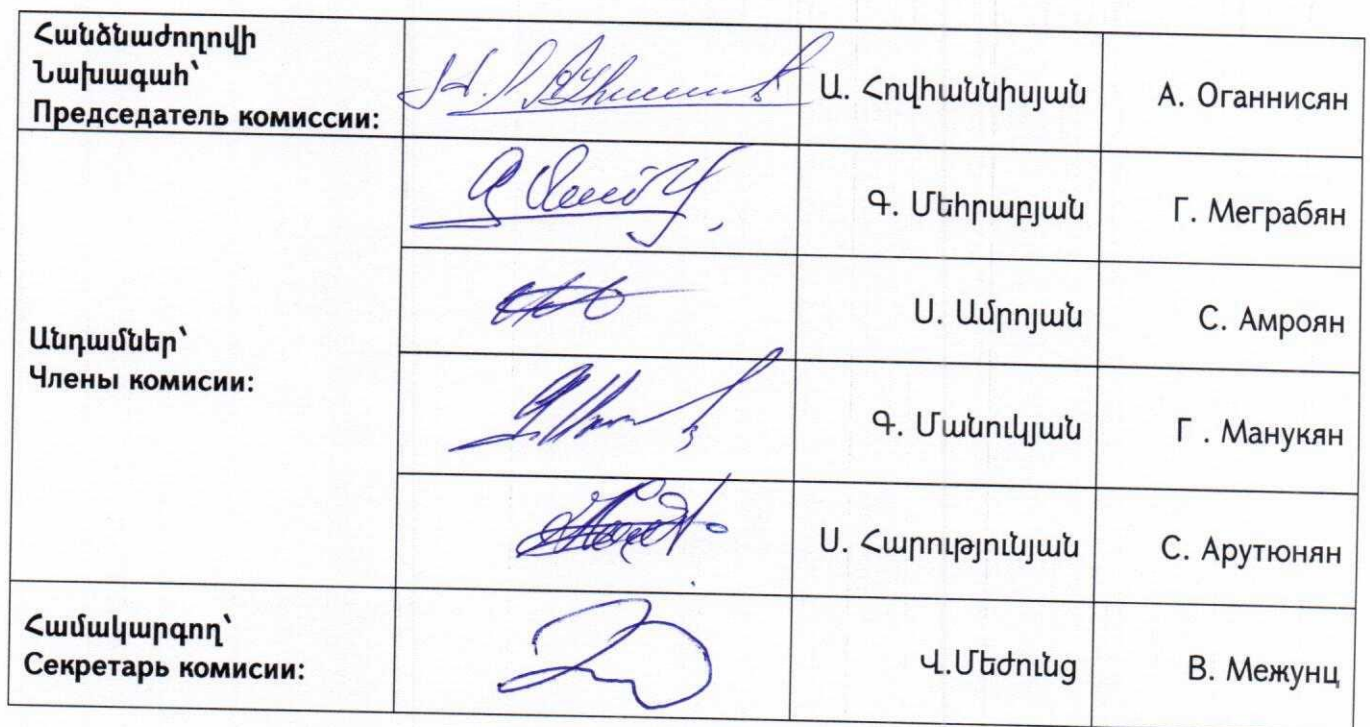 Հանձնաժողովի
Նախագահ՝
Председатель комиссии:
Ա. Հովհաննիսյան
А. Оганнисян
Գ. Մեհրաբյան
Г. Меграбян
Անդամներ՝
Члены комисии:
Ս. Ամրոյան
С. Амроян
Գ. Մանուկյան
Г . Манукян
Ս. Հարությունյան
С. Арутюнян
Համակարգող՝
Секретарь комисии:
Վ.Մեժունց
В. Межунц